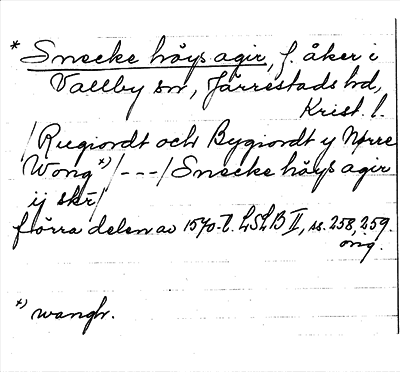 * Snecke höys agir, f. åker i
Vallby sn, Järrestads hd,
Krist. l.
/Ruegiordt och Bygiordt y Nørre
Wong *)/ - - - / Snecke höys agir
ij skr/
förra delen av 1570-t. LSLB II, ss. 258, 259.
orig.
*) wangh.